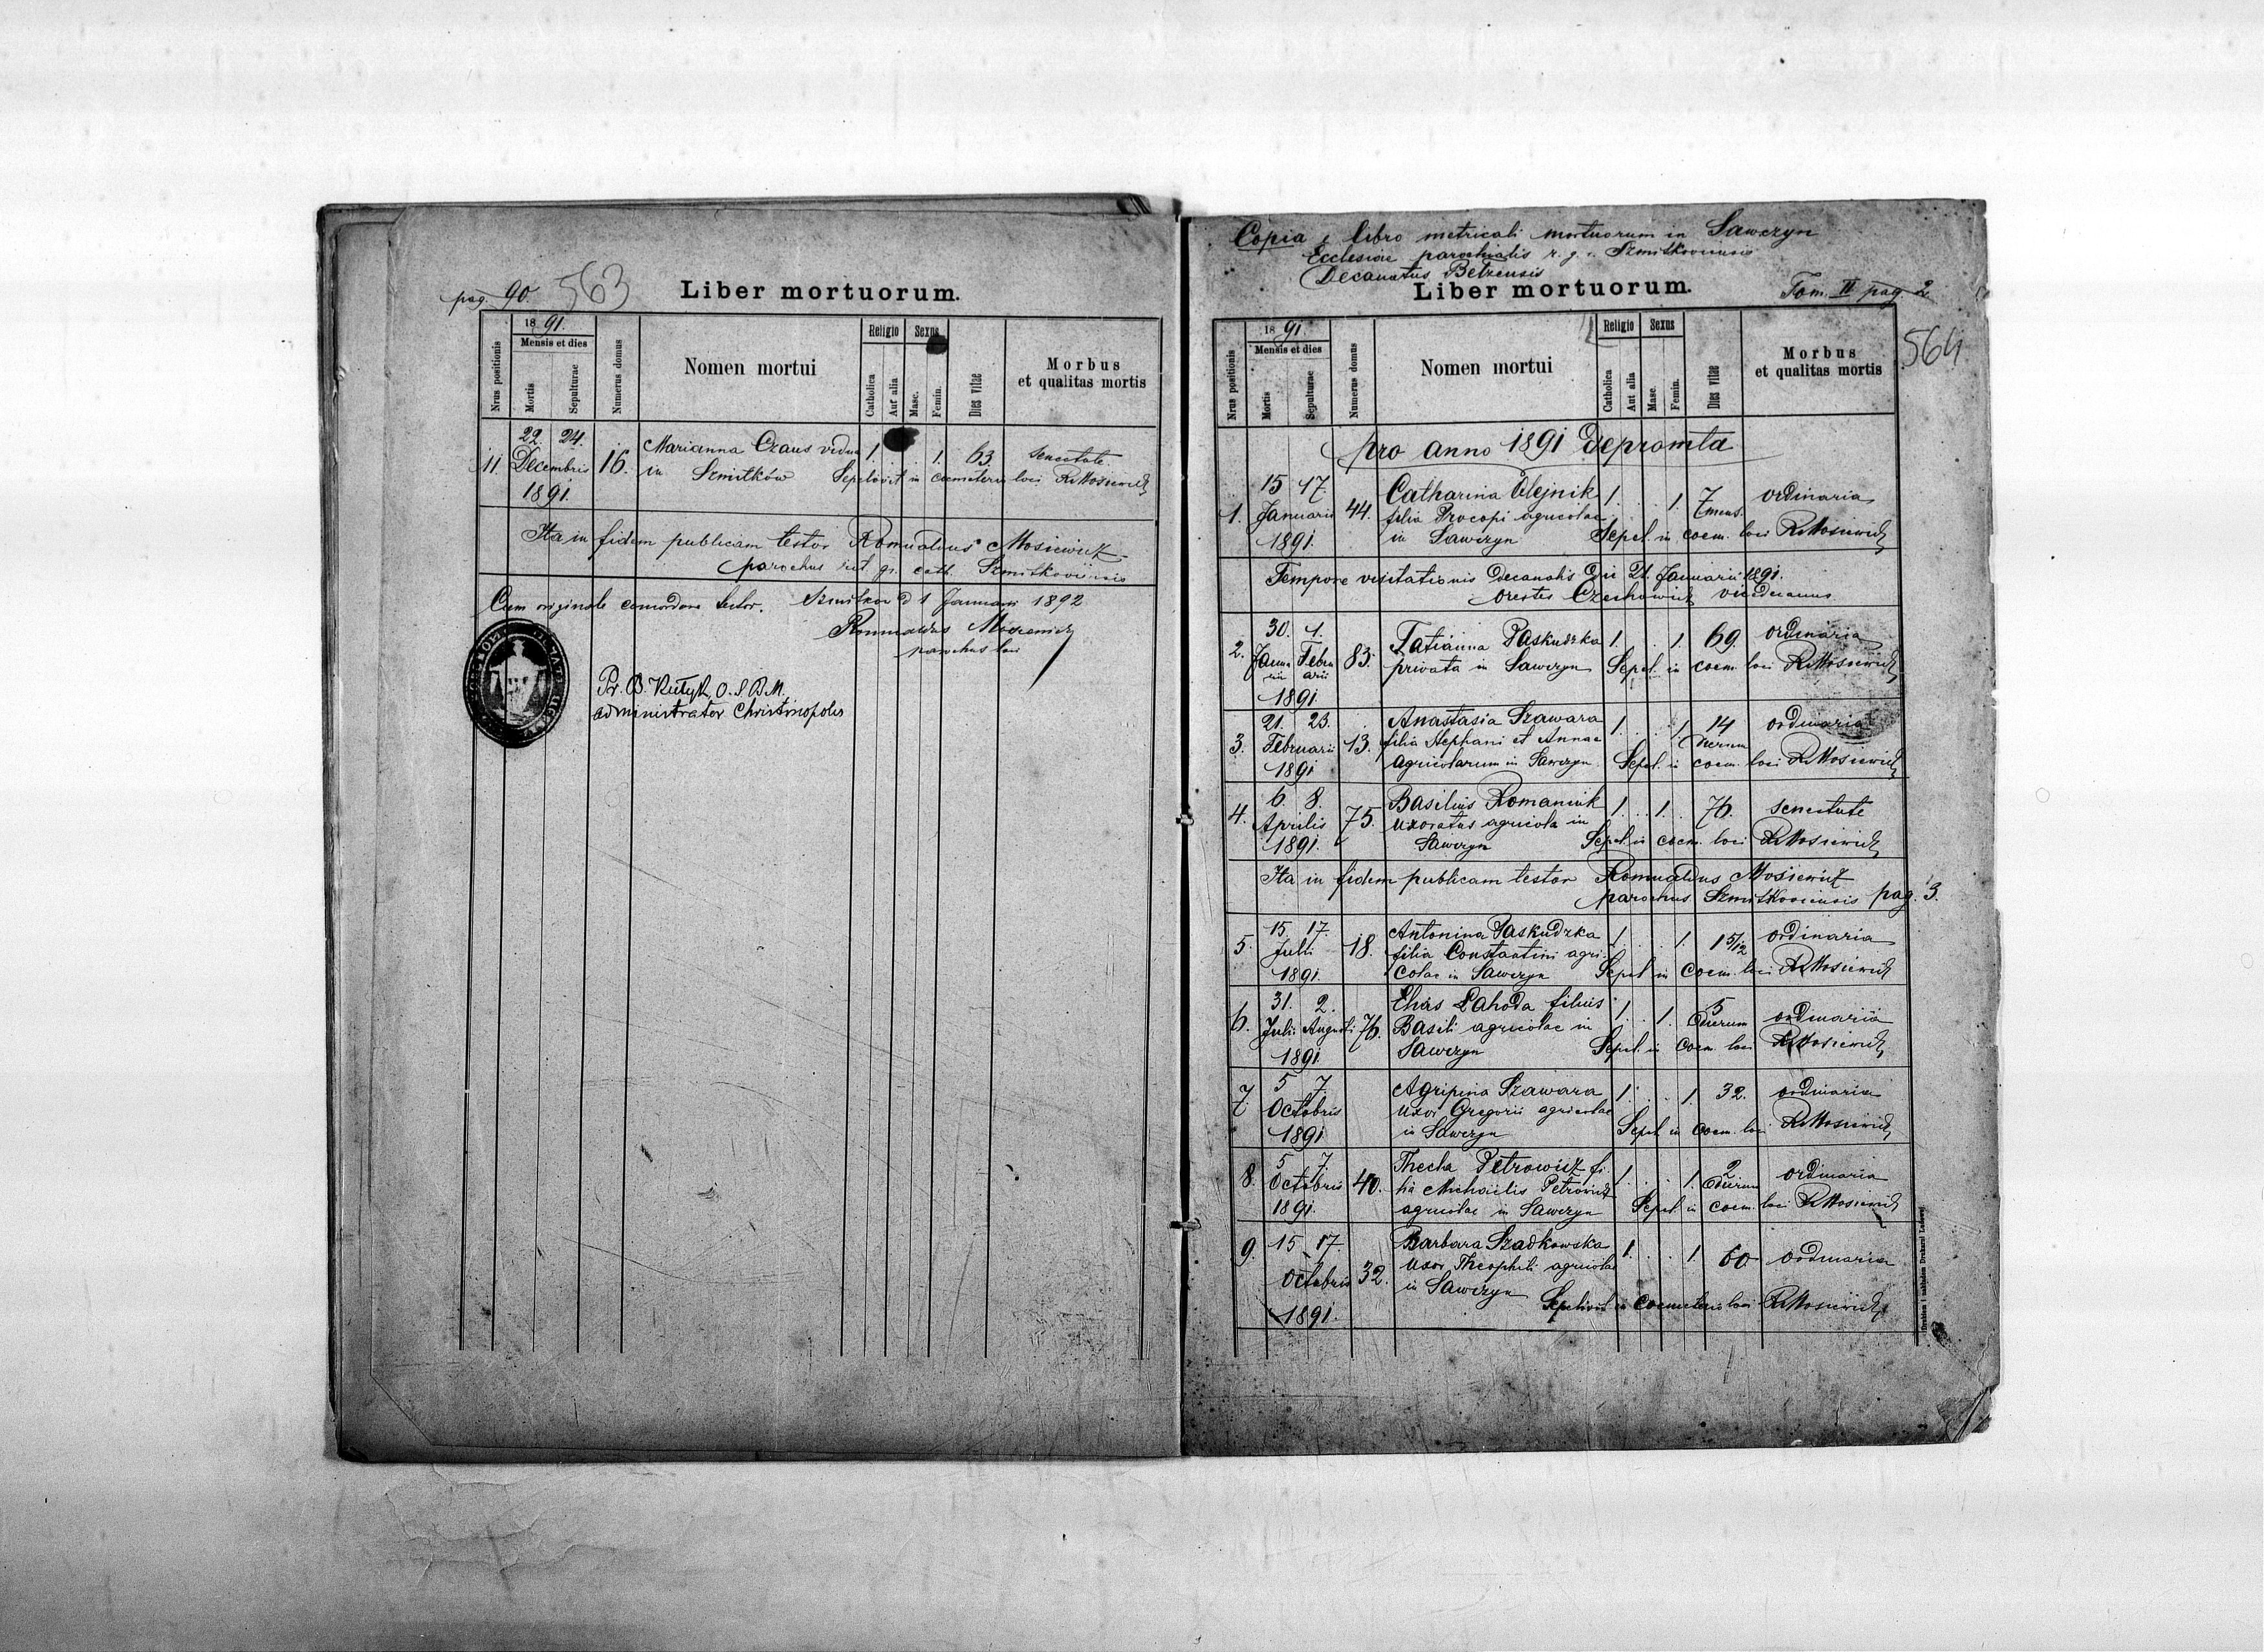 pag. 90. 563
Liber mortuorum.
Nrus positionis
1891.
Mensis et dies
Mortis
Sepulturae
Numerus domus
Nomen mortui
Religio
Catholica
Aut alia
Sexus
Masc.
Femin.
Dies vitae
Morbus
et qualitas mortis
11. 22. 24. Decembris 1891. 16. Marianna Czaus vidua 1. . . 1. 63. senectute
in Szmitków Sepelivit in coemeterio loci R Mosiewicz
Ita in fidem publicam testor Romualdus Mosiewicz
parochus rit. gr. cath. Szmitkoviensis
Cum originale concordare testor. Szmitkow d 1 Januarii 1892
Romualdus Mosiewicz
parochus loci
Pr. B. Kutyk, O.S.B.M.
administrator Christinopolis
Copia e libro metricali mortuorum in Sawczyn
Ecclesiae parochialis r. g. c. Szmitkoviensis
Decanatus Belzensis
Liber mortuorum.
Tom. II pag. 2
564
Nrus positionis
1891.
Mensis et dies
Mortis
Sepulturae
Numerus domus
Nomen mortui
Religio
Catholica
Aut alia
Sexus
Masc.
Femin.
Dies vitae
Morbus
et qualitas mortis
pro anno 1891 depromta
1. 15 17. Januarii 1891. 44. Catharina Olejnik 1. . . 1. 7 mens. ordinaria
filia Procopi agricolae
in Sawczyn Sepel. in coem. loci R Mosiewicz
Tempore visitationis Decanalis die 21. Januarii 1891.
Orestes Czechowicz vicedecanus
2. 30. 1. Januarii Februarii 1891 83. Tatianna Paskudzka 1. . . 1. 69. ordinaria
privata in Sawczyn Sepel. in coem. loci R Mosiewicz
3. 21. 23. Februarii 1891 13. Anastasia Szawara 1. . . 1. 14 dierum ordinaria
filia Stephani et Annae
agricolarum in Sawczyn Sepel. in coem. loci R Mosiewicz
4. 6. 8. Aprilis 1891. 75. Basilius Romaniuk 1. . 1. . 76. senectute
uxoratus agricola in
Sawczyn Sepel. in coem. loci R Mosiewicz
Ita in fidem publicam testor Romualdus Mosiewicz
parochus Szmitkoviensis pag. 3.
5. 15. 17. Julii 1891. 18. Antonina Paskudzka 1. . . 1. 1 5/12 ordinaria
filia Constantini agri-
colae in Sawczyn Sepel. in coem. loci R Mosiewicz
6. 31. 2. Julii Augusti 1891. 76. Elias Lahoda filius 1. . 1. 5 dierum ordinaria
Basili agricolae in
Sawczyn Sepel. in coem. loci R Mosiewicz
7. 5 7. Octobris 1891 Agripina Szawara 1. . . 1. 32. ordinaria
uxor Gregorii agricolae
in Sawczyn Sepel. in coem. loci R Mosiewicz
8. 5 7. Octobris 1891. 40. Thecla Petrowicz fi- 1. . . 1. 2 dierum ordinaria
lia Michaelis Petrowicz
agricolae in Sawczyn Sepel. in coem. loci R Mosiewicz
9. 15 17. Octobris 1891. 32. Barbara Szadkowska 1. . . 1. 60 ordinaria
uxor Theophili agricolae
in Sawczyn
Sepelivit in coemeterio loci R Mosiewicz
Drukiem i nakładem Drukarni Ludowej